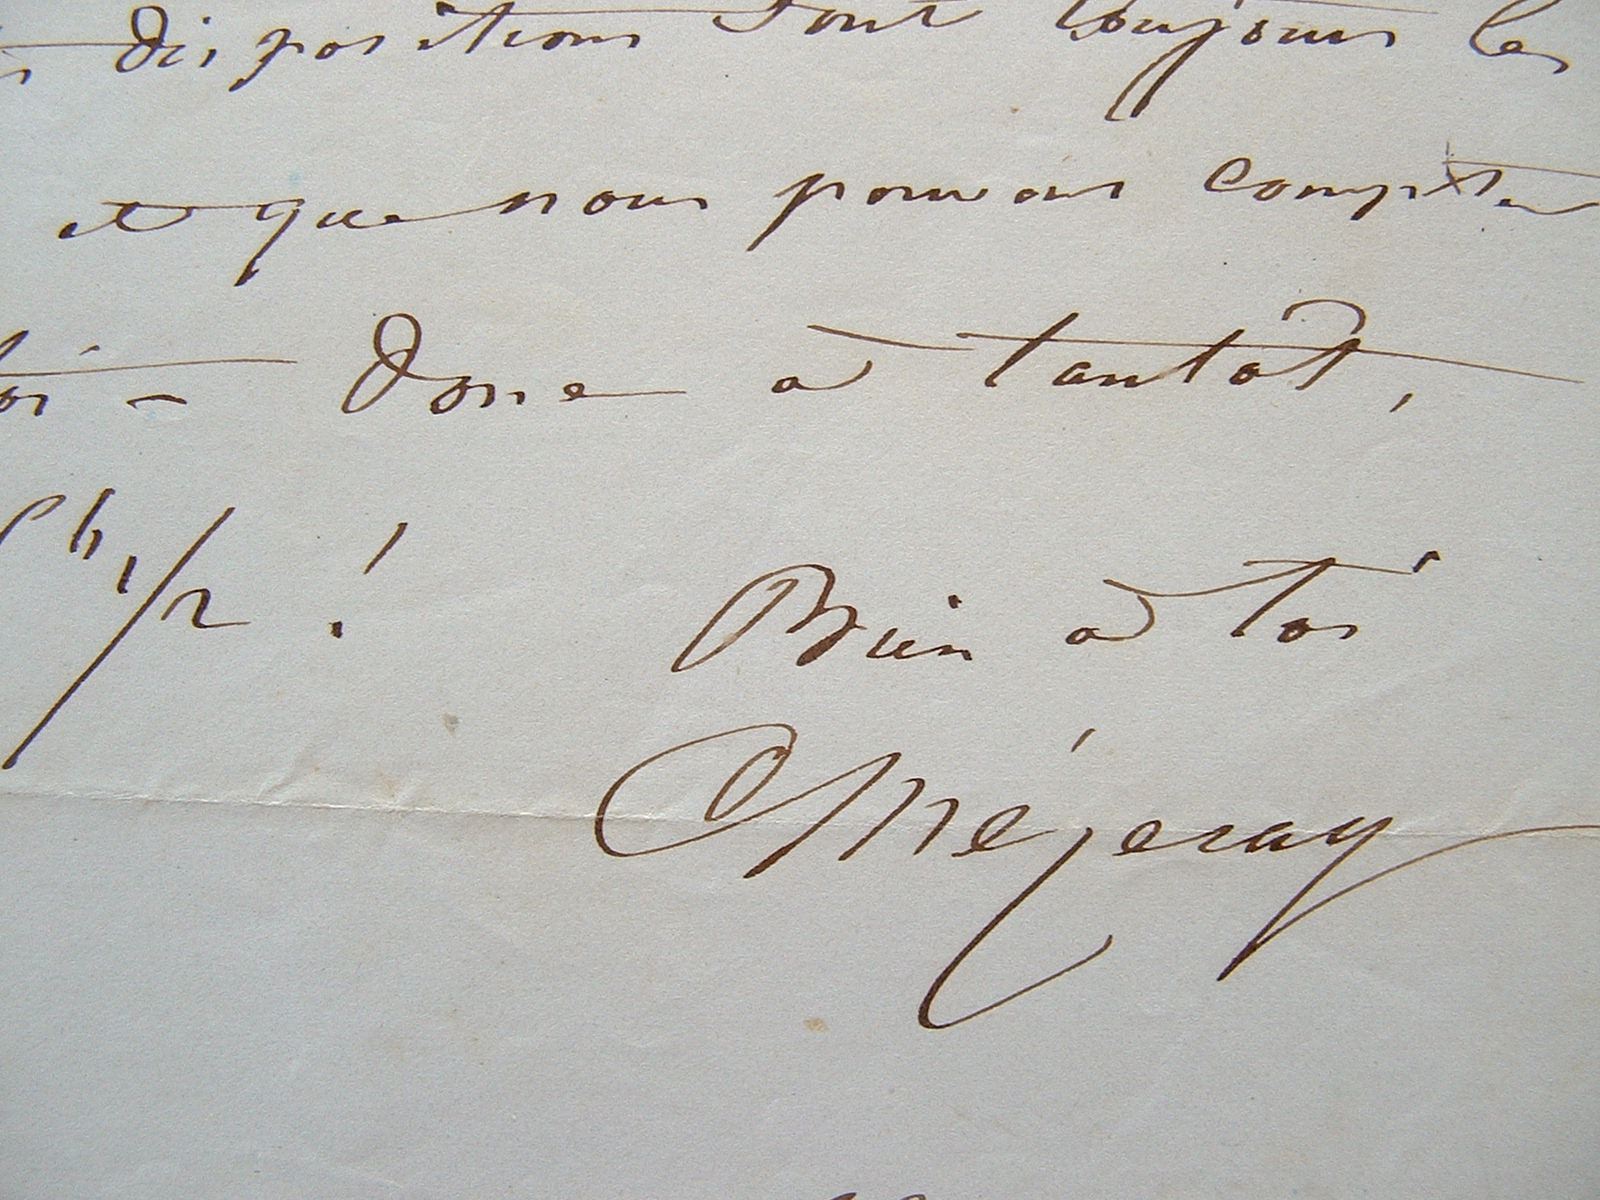 dispositions sont toujours les
et que nous pouvons compter
toi - Donc à tantôt,
h 1/2 !
Bien à toi
Méjeray